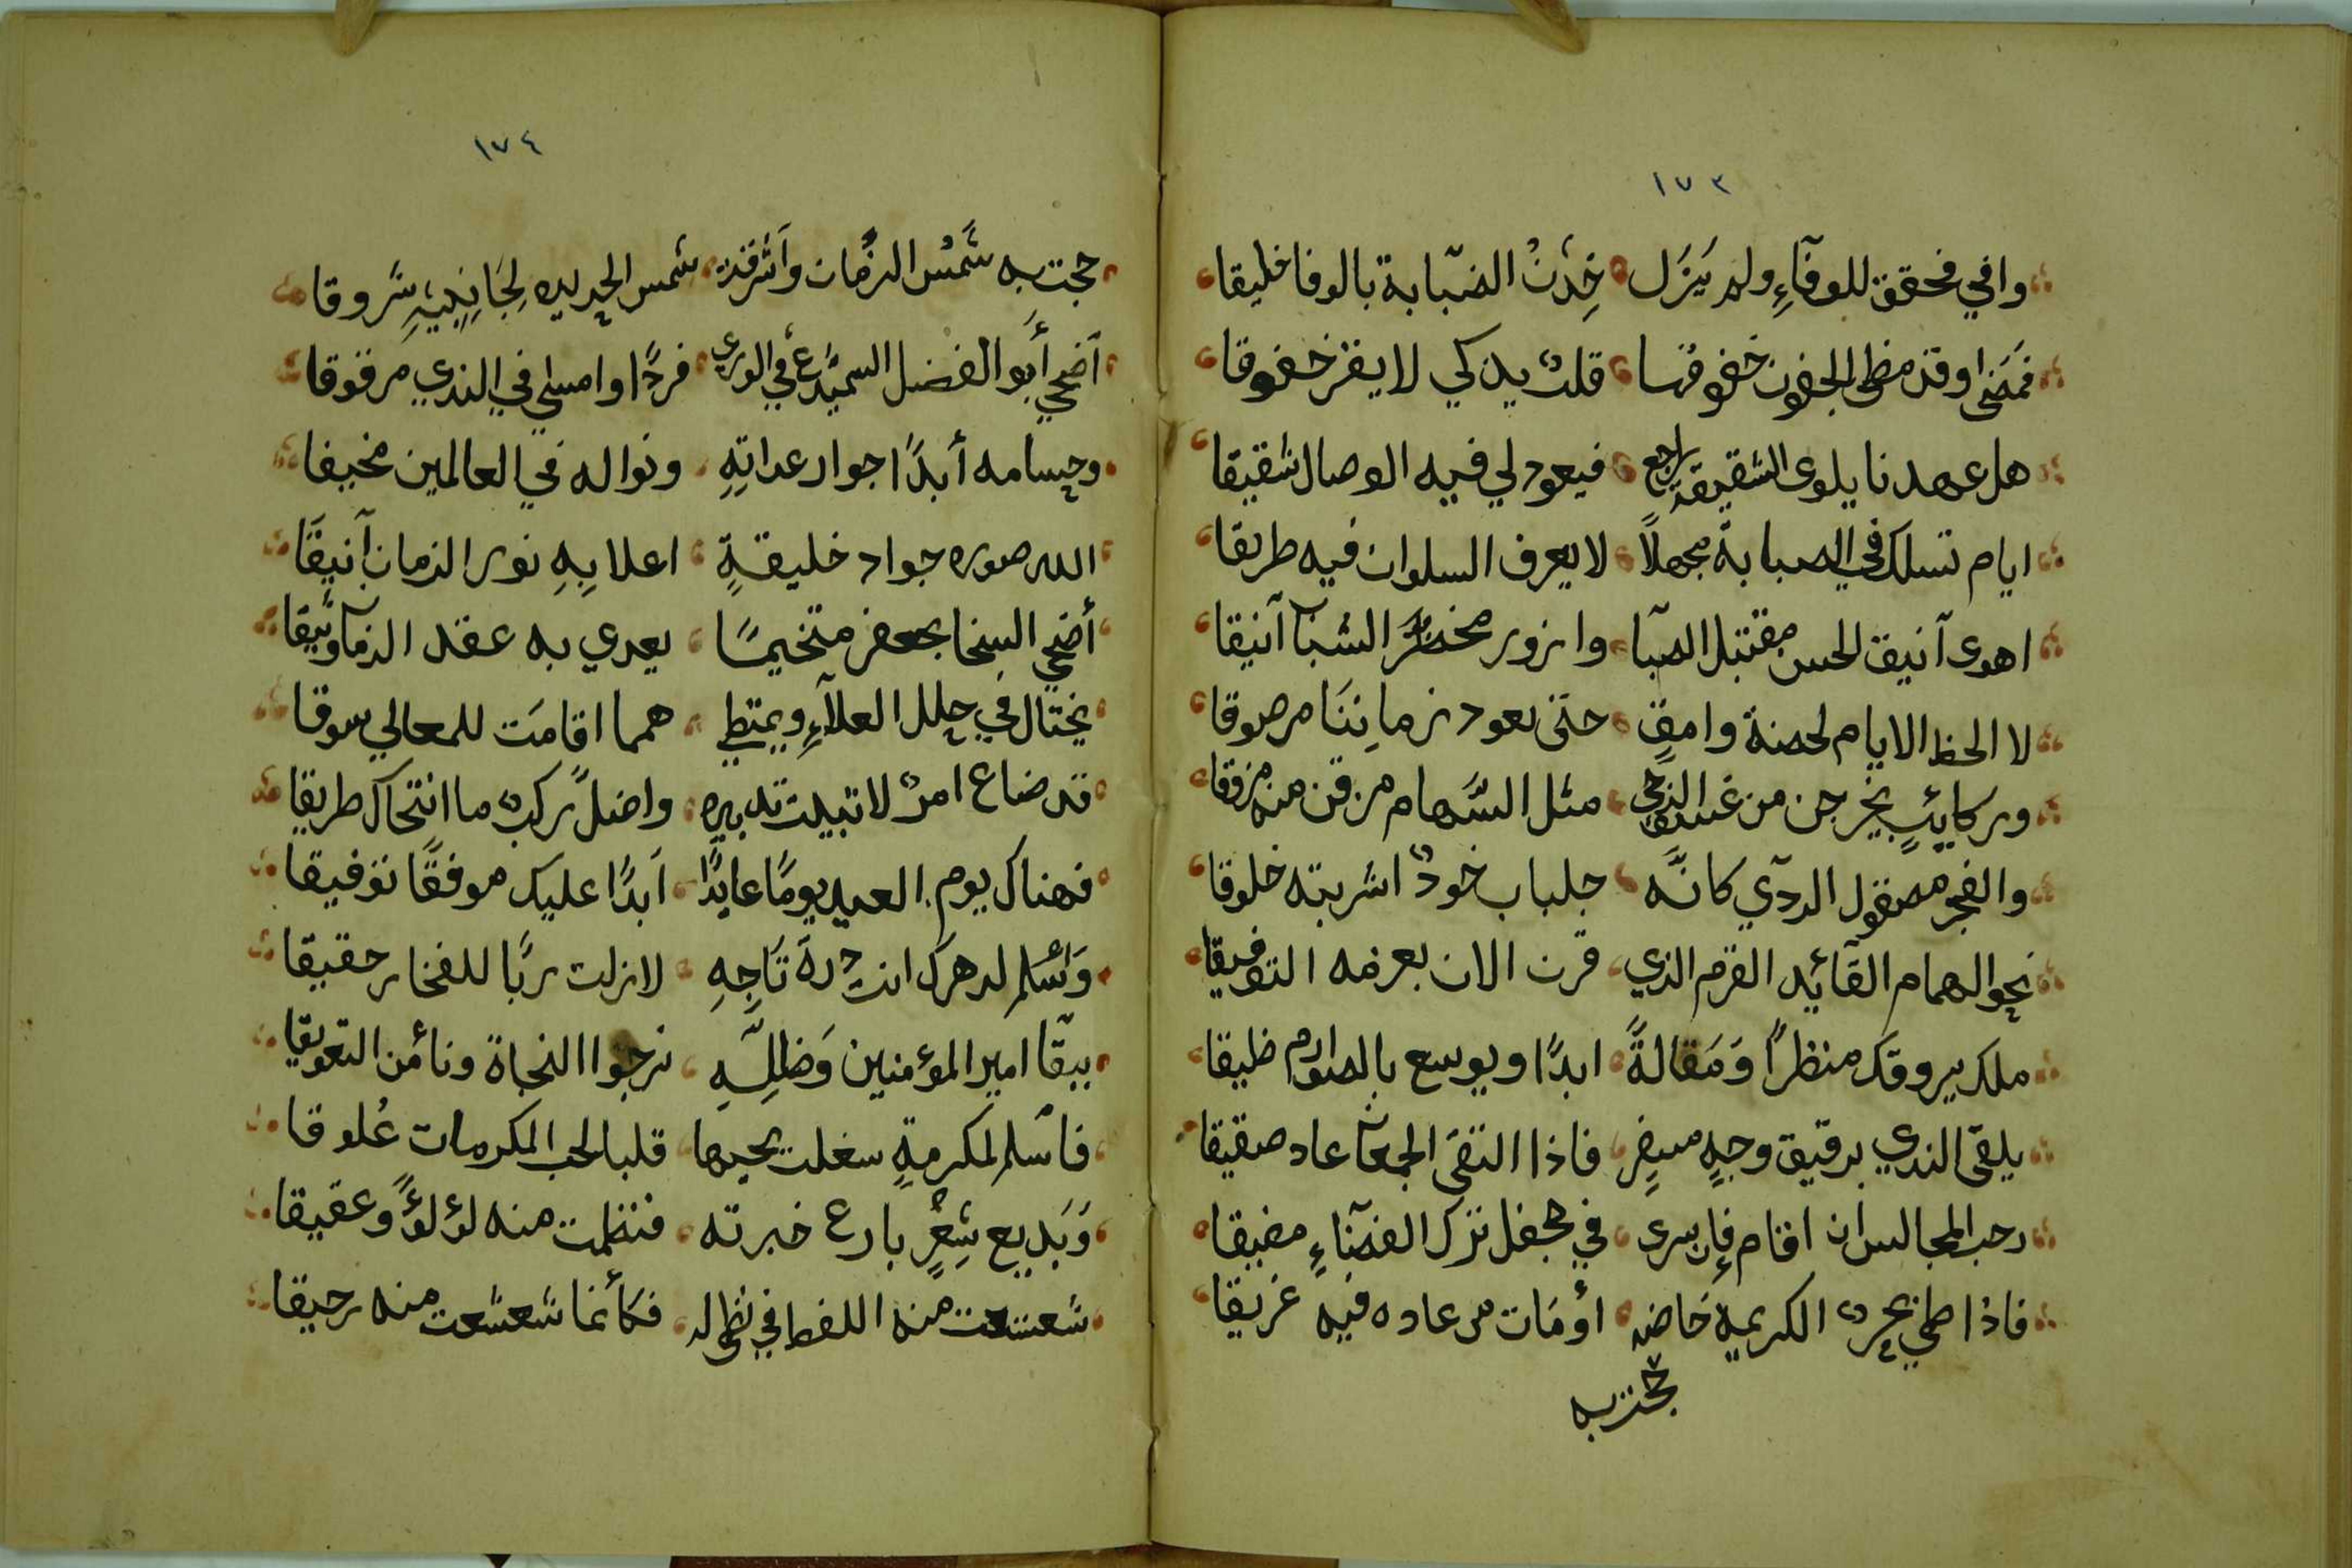 ١٧٣
وافي فحقق للوفآءِ ولم يَزَل خِدْنُ الصّبابة بالوفا خليقا
فمَضى وقد مظى الجفون خفوقها قلبٌ يذكي لا يقر خفوقا
هل عهدنا يلوى الشقيقة راجع فيعود لي فيه الوصال شقيقا
ايام تسلك في الصبابة مجهلاً لا يعرف السلوان فيه طريقا
اهوى آنيق الحسن مقتبل الصبّا وازور مخضرّ الشبآ آنيقا
لا الحظ الايام لحضة وامقٍ حتى يعود زماننَا مرصوقا
وركايبٍ يخرجن من غسق الدجي مثل السّهام مرقن منه مروقا
والفجر مصقول الردآي كانّه جلباب خودٌ اشربته خلوقا
نحو الهمام القآئد القرم الذي قرن الاله بعزمه التوفيقا
ملك يروقك منظراً وَمَقالةً ابدًا ويوسع بالصوارم ظيقا
يلقى الندي برقيق وجهٍ مسفرٍ فاذا التقى الجمعان عاد صقيقا
رحب المجالس ان اقام فإن سرى في جحفل ترك الفضآءِ مضيقا
فاذا طمي بحرٌ الكريهة خاضه اؤمات من عاده فيه غريقا
حجت به
١٧٤
حجت به شَمْسُ الزمان وآشرقت شمس الحديد لِجَانِبَيْهِ شَروقا
آضحي أبو الفضل السميدع في الوري فردًا وامسى في الندي مرقوقا
وحسامه أبدًا جوار عداتِهِ ونواله في العالمين مخيفا
الله صوره جواد خليقةٍ اعلا بِهِ نور الزمان آنيقَا
أضحي السخا بجعفر متخيمًا يعدي به عقد الزمآ وثيقا
يختال في حلل العلآءِ ويمتطي همما اقامَت للمعالي سوقا
قد ضاع امرٌ لا تبيلت تدبيره واضلّ ركبٌ ما انتحاك طريقا
فهناك يوم العيد يومًا عايدًا آبدًا عليك موفقًا توفيقا
وَاسْلم لدهرك انت درة تَاجِهِ لازلت ربًّا للفخار حقيقا
ببقآ امير المؤمنين وَظِلِّهِ نرجوا النجاة ونأمن التعويقا
فاسْلم لمكرمةٍ سغلت بحبها قلبا لحب المكرمات عُلوقا
وَبَديع شِعْرٍ بارع خبرته فنظمت منه لؤلؤً وعقيقا
شعشعت منه اللفط في نظاله فكأنما شعشعت منه رحيقا